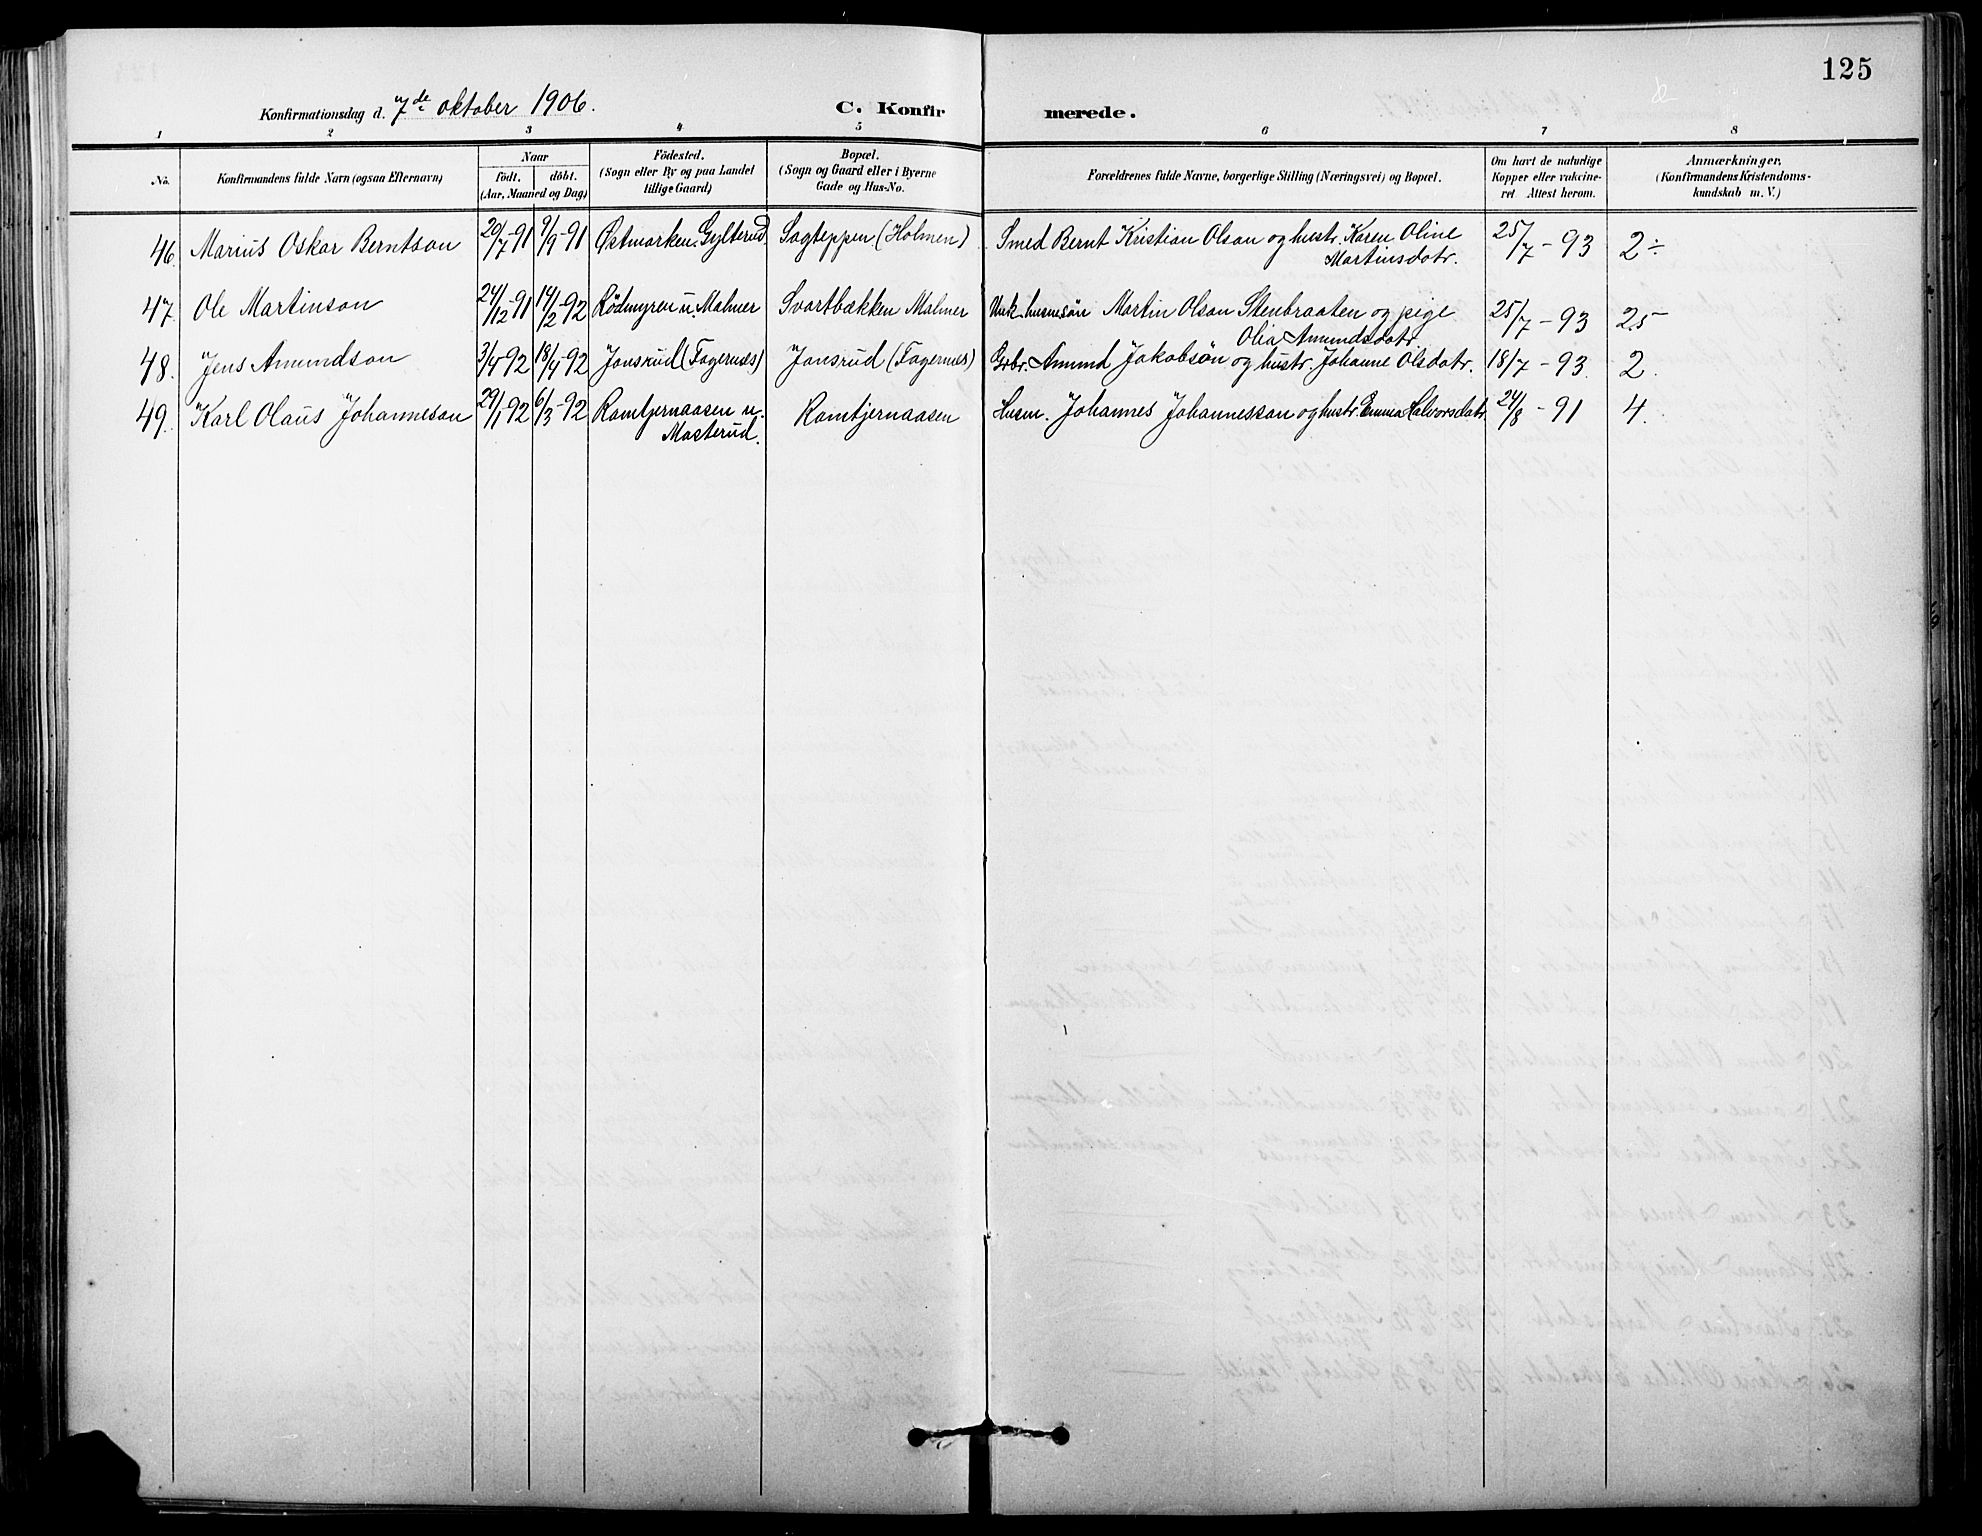 125
Konfirmationsdag d. 7de oktober 1906. C. Konfir merede.
1 2 3 4 5 6 7 8
No. Konfirmandens fulde Navn (ogsaa Efternavn)
Naar
födt. döbt.
(Aar, Maaned og Dag)
Födested.
(Sogn eller By og paa Landet
tillige Gaard)
Bopæl.
(Sogn og Gaard eller i Byerne
Gade og Hus-No.
Forældrenes fulde Navne, borgerlige Stilling (Næringsvei) og Bopæl.
Om havt de naturlige
Kopper eller vakcine-
ret Attest herom.
Anmærkninger,
(Konfirmandens Kristendoms-
kundskab m. V.)
46. Marius Oskar Berntson 20/7-91 9/9-91 Østmarken, Gylterud Sagteppen (Holmen) Smed Bernt Kristian Olson og hustr. Karen Oline 25/7-93 2÷
Martinsdatr.
47 Ole Martinson 24/12-91 14/2-92 Rödmyren u. Malmer Svartbækken Malmer Unk. husmsön Martin Olson Stenbraaten og pige 25/7-93 25
Olia Amundsdatr
48. Jens Amundson 3/4-92 18/4-92 Jonsrud (Fagernæs) Jonsrud (Fagernæs) Grbr. Amund Jakobsön og hustr. Johanne Olsdatr. 18/7-93. 2.
49. Karl Olaus Johanneson 29/1-92 6/3-92 Ramtjernaasen u. Ramtjernaasen Husm. Johannes Johannesson og hustr. Emma Halvorsdatr 24/8-91 4.
Masterud.